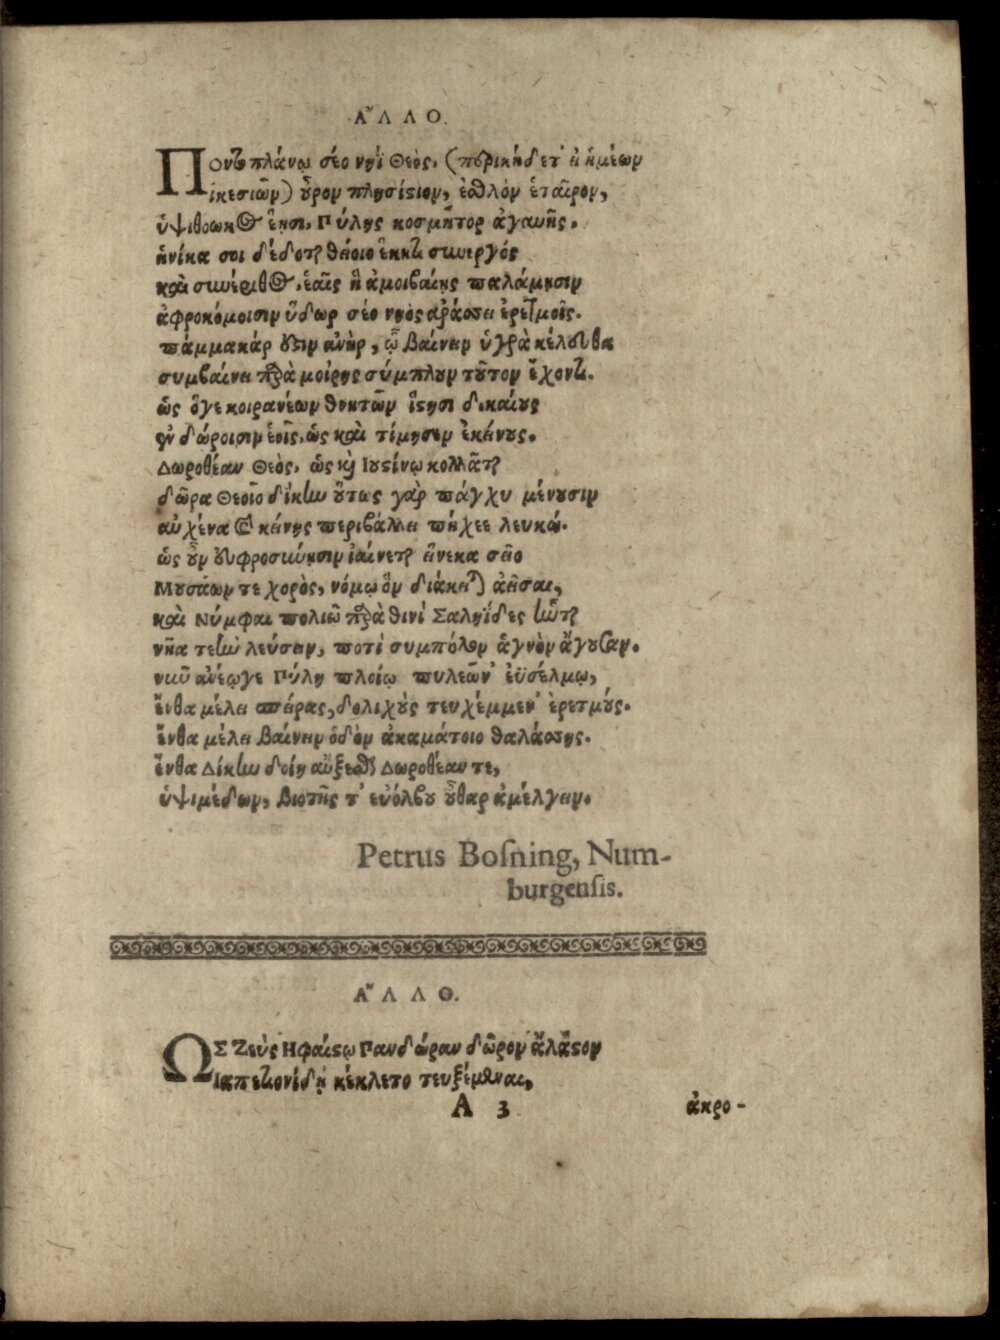 ἌΛΛΟ.
Ποντοπλάνῳ σέο νηῒ Θεὸς, (περικήδετ' ἢ ἡμέων
ἱκεσιῶν) οὖρον πλησίστιον, ἐσθλὸν ἑταῖρον,
ὑψίθωκος ἵησι, Πύλης κοσμῆτορ ἀγαυῆς.
ἡνίκα σοι δέδοται θείοιο ἕκητι συνεργός
καὶ συνέριθος, ἑαῖς ἣ ἀμοιβαίης παλάμησιν
ἀφροκόμοισιν ὕδωρ σέο νηὸς ἀράσσει ἐρετμοῖς.
πάμμακάρ οὗτιν ἀνὴρ, ᾧ βαίνειν ὑγρὰ κέλευθα
συμβαίνει παρὰ μοίρης σύμπλουν τοῦτον ἔχοντι.
ὡς ὅγε κοιρανέων θνητῶν ἵστησι δικαίους
σὺν δώροισιν ἑοῖς, ὡς καὶ τίμησεν ἐκείνους.
Δωροθέαν Θεὸς, ὡς καὶ Ἰουστίνῳ κολλᾶται
δῶρα Θεοῖο δίκην οὕτως γὰρ πάγχυ μένουσιν
αὐχένα καὶ κείνης περιβάλλει πήχεε λευκώ.
ὡς οὖν εὐφροσύνησιν ἰαίνεται εἵνεκα σεῖο
Μουσάων τε χορὸς, νόμῳ ὃν διάκειται ἀεῖσαι,
καὶ Νύμφαι πολιῶ παρὰ θινὶ Σαληΐδες
νῆα τεὴν λεύσειν, ποτὶ συμπόλον ἁγνὸν ἄγουσαν.
νῦν ἀνέῳγε Πύλη πλοίῳ πυλεῶν' ἐϋσέλμῳ,
ἔνθα μέλει σπείρας, δολιχοὺς τευχέμμεν' ἐρετμούς.
ἔνθα μέλει βαίνειν ὁδὸν ἀκαμάτοιο θαλάσσης.
ἔνθα Δίκην δοίη αὔξεσθαι Δωροθέαν τε,
ὑψιμέδων, βιοτῆς τ' εὐόλβου οὖθαρ ἀμέλγειν.
Petrus Bosning, Num-
burgensis.
ἌΛΛΟ.
ΩΣ Ζεὺς Ηφαίστῳ Πανδώραν δῶρον ἄλαστον
Ιαπετιονίδῃ κέκλετο τευξέμεναι,
A 3 ἀκρο-